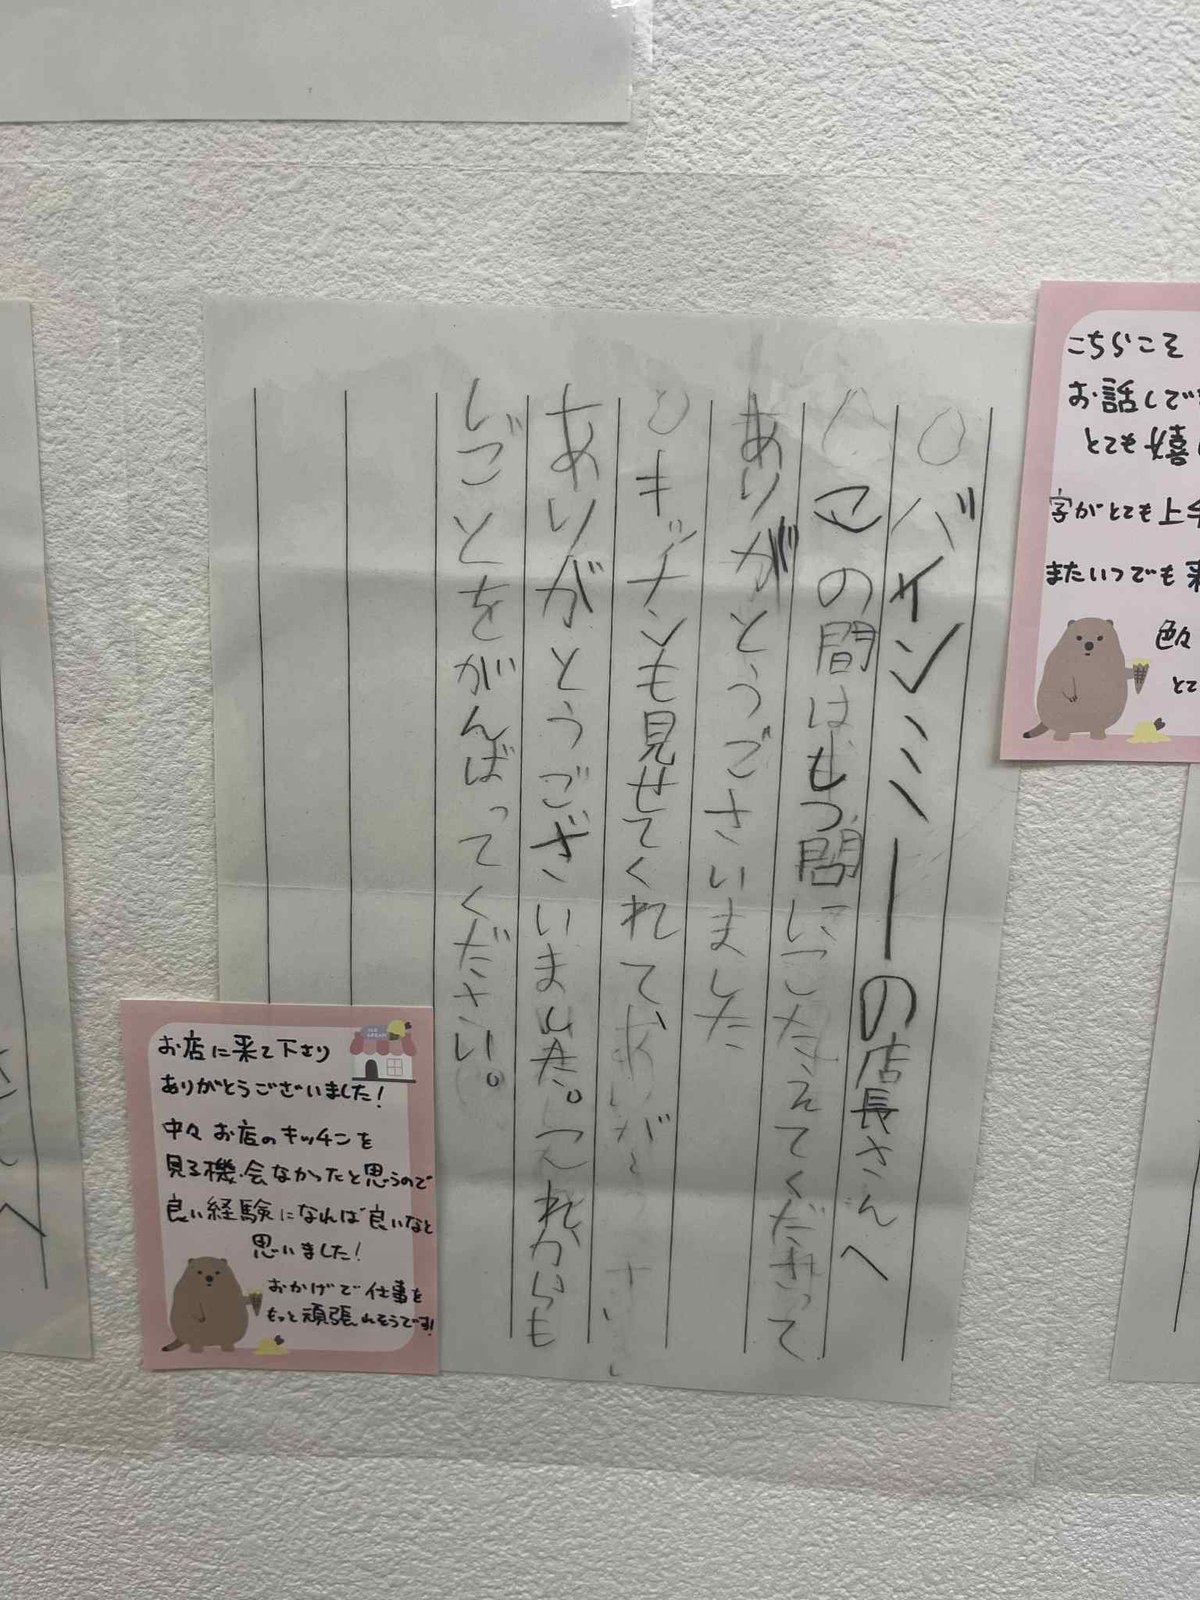 バインミーの店長さんへ
この間はもつ問にこたえてくださって
ありがとうごさいました
キッチンも見せてくれて、
ありがとうございました。これからも
しごとをがんばってください。
お店に来て下さり
ありがとうございました!
中々お店のキッチンを
見る機会なかったと思うので
良い経験になれば良いなと
思いました!
おかげで仕事を
もっと頑張れそうです!
こちらこそ
お話しでき
とても嬉
字がとても上手
またいつでも来
色々
とて